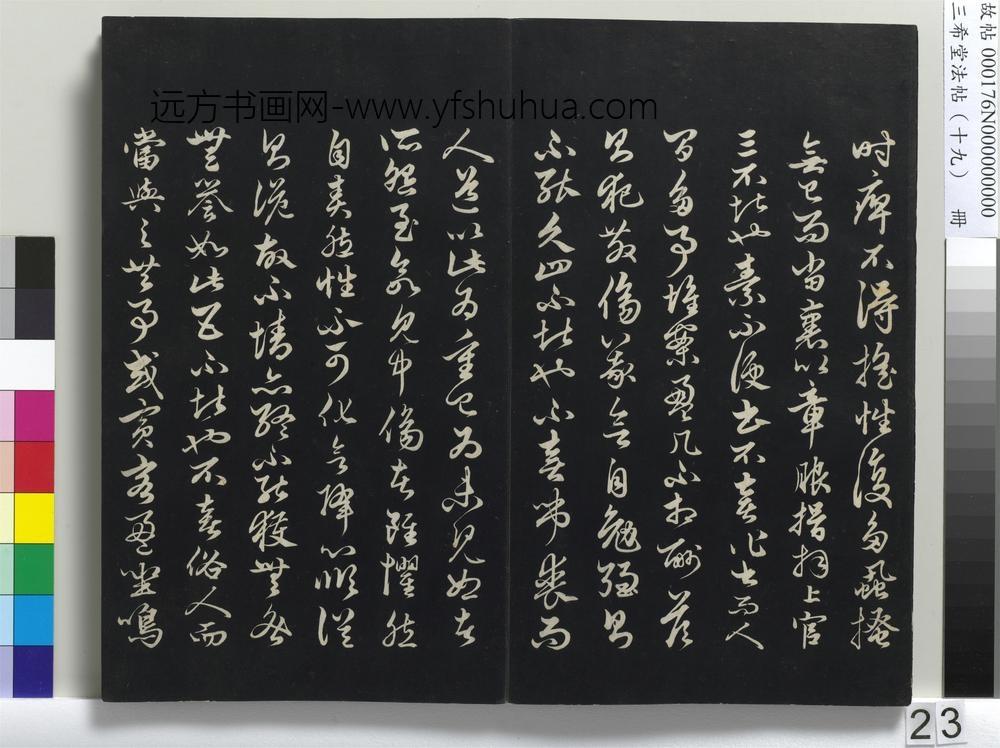 时痺不得摇性復多蝨搔
無已而當裹以章服揖拜上官
三不堪也素不便書不喜作書而人
間多事堆案盈几不相酬答
則犯教傷義欲自勉强則
不能久四不堪也不喜弔喪而
人道以此為重已為未見恕者
所怨至欲見中傷者雖懼然
自責然性不可化欲降心順
則詭故不情亦終不能獲無咎
無譽如此五不堪也不喜俗人而
當與之共事或賓客盈坐鳴
远方书画网-www.yfshuhua.com
故帖 000176N000000000
三希堂法帖（十九） 冊
23